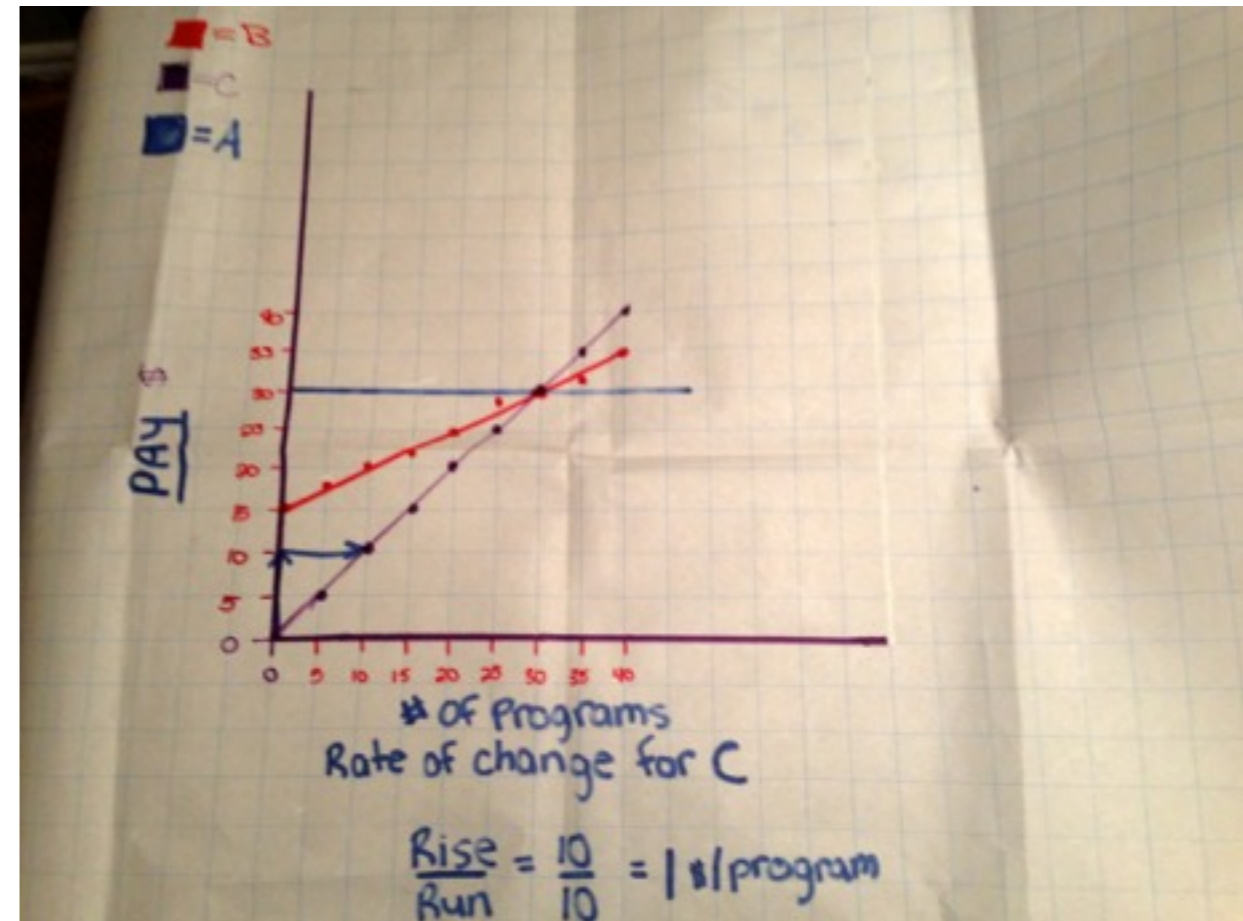 = B
- C
= A
PAY $
40
35
30
25
20
15
10
5
0
0 5 10 15 20 25 30 35 40
# of Programs
Rate of change for C
Rise = 10 = 1 $/program
Run 10